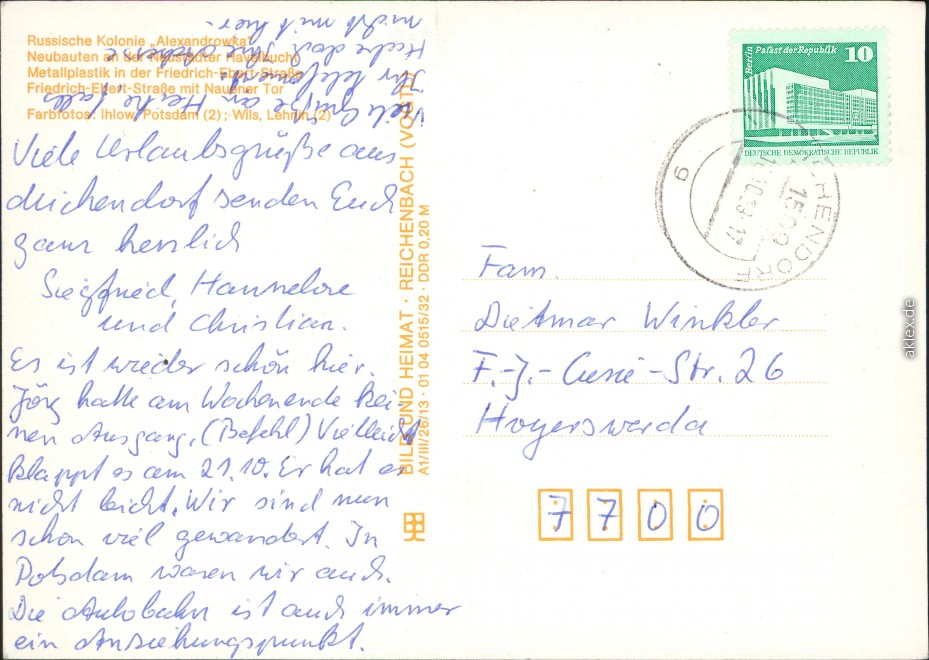 Russische Kolonie „Alexandrowka"
Neubauten an der Neustädter Havelbucht
Metallplastik in der Friedrich-Ebert-Straße
Friedrich-Ebert-Straße mit Nauener Tor
Farbfotos: Ihlow, Potsdam (2); Wils, Lehnin (2)
Viele Urlaubsgrüße aus
Michendorf senden Euch
ganz herzlich
Siegfried, Hannelore
und Christian.
Es ist wieder schön hier.
Jörg hatte am Wochenende kei-
nen Ausgang, (Befehl) Vielleicht
klappt es am 21.10. Er hat es
nicht leicht. Wir sind nun
schon viel gewandert. In
Potsdam waren wir auch.
Die Autobahn ist auch immer
ein Anziehungspunkt.
Viele Grüße an Heike, falls
Ihr
Habe doch Ihre Adresse
nicht mit hier.
BILD UND HEIMAT · REICHENBACH (VOGTL)
A1/III/26/13 · 01 04 0515/32 · DDR 0,20 M
Berlin Palast der Republik
10
DEUTSCHE DEMOKRATISCHE REPUBLIK
MICHENDORF
1509
Fam.
Dietmar Winkler
F.-J.-Curie-Str. 26
Hoyerswerda
7700
aklex.de